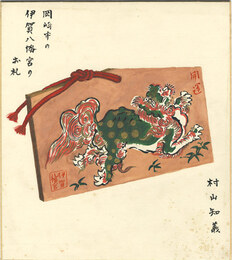 岡崎市の
伊賀八幡宮の
お札
開運
伊賀
村山知義